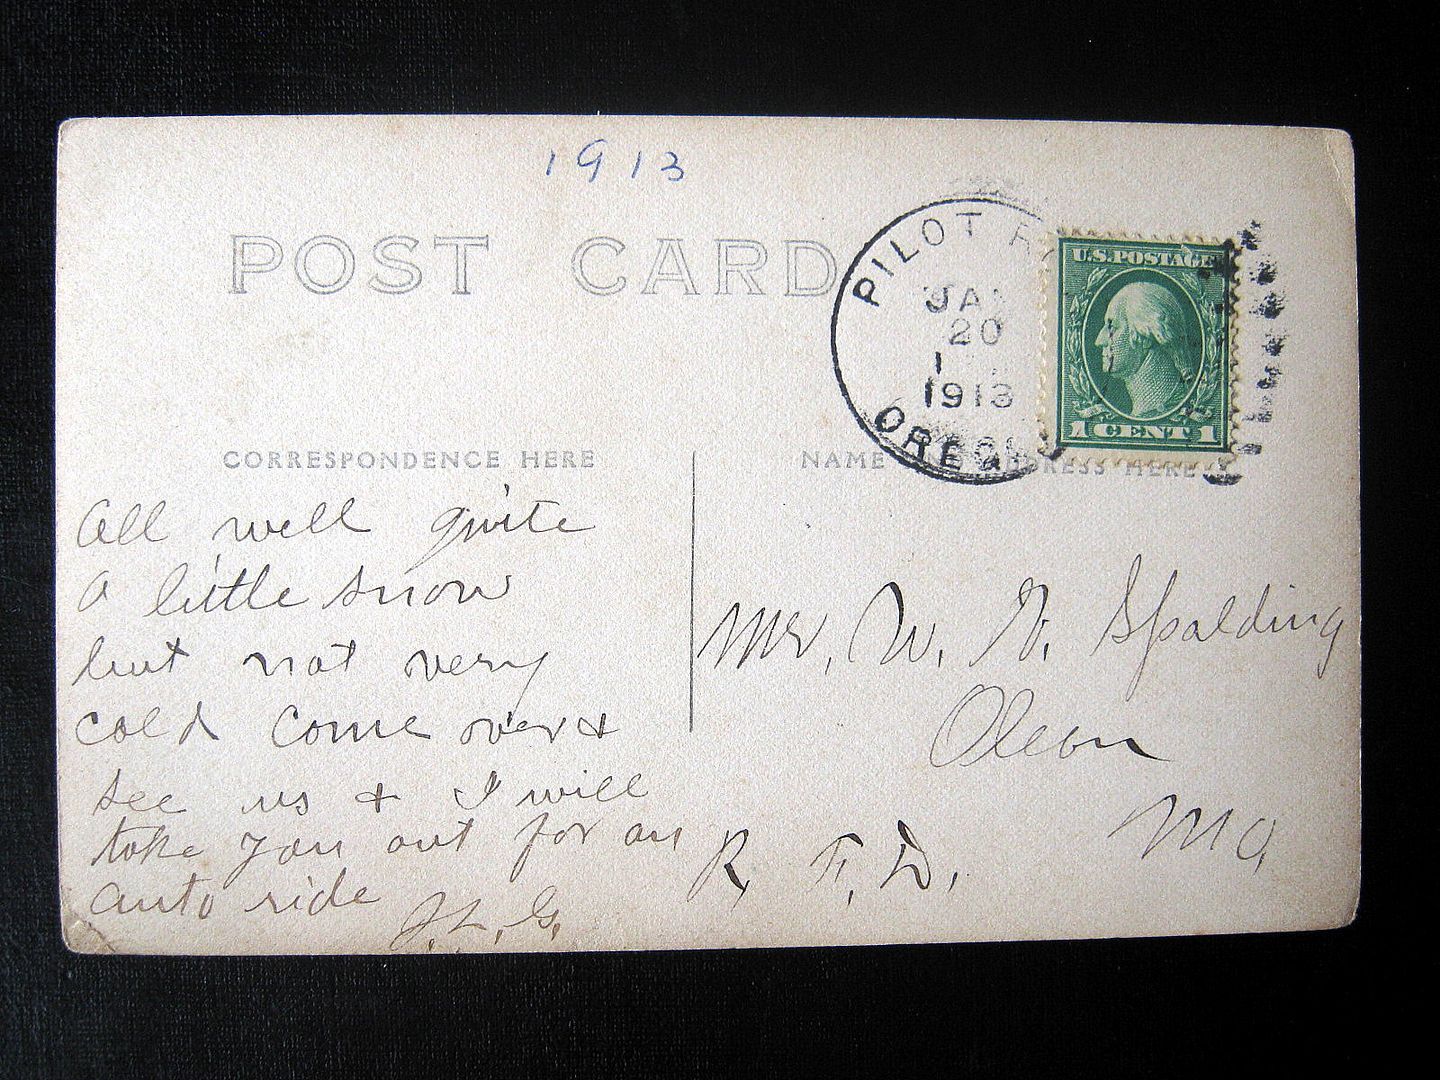 1913
POST CARD
PILOT R
JAN
20
1
1913
OREGON
U.S.POSTAGE
1 CENT 1
CORRESPONDENCE HERE
NAME AND ADDRESS HERE
All well quite
a little snow
but not very
cold come over &
see us & I will
take you out for an
auto ride
J.L.G.
Mr, W. N. Spalding
Olean
Mo,
R. F. D.